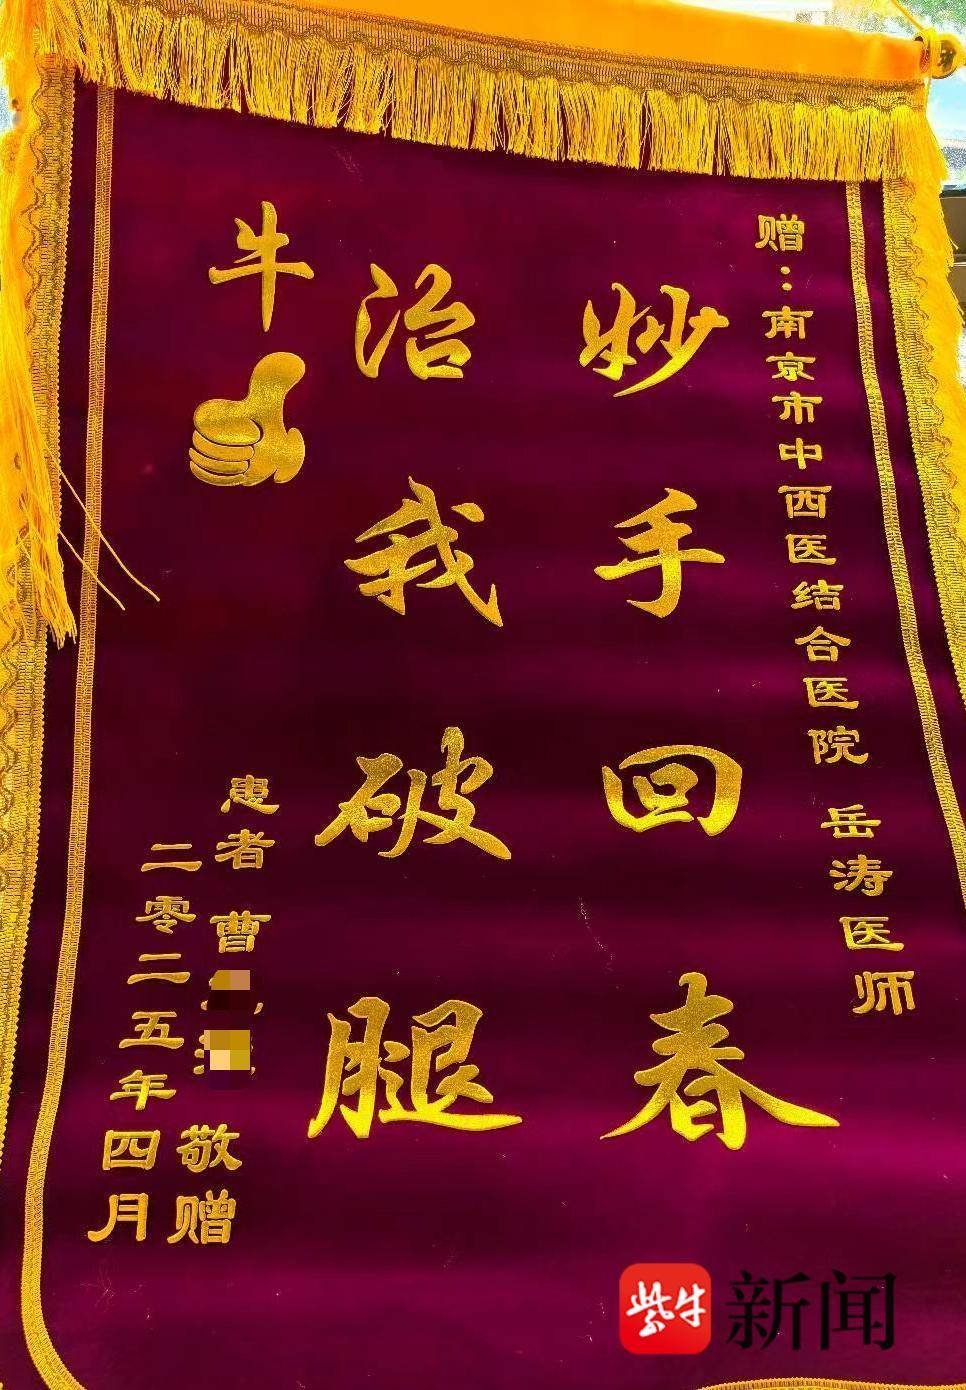 赠：南京市中西医结合医院 岳涛医师
妙手回春
治我破腿
牛
患者 曹 敬赠
二零二五年四月
紫牛新闻